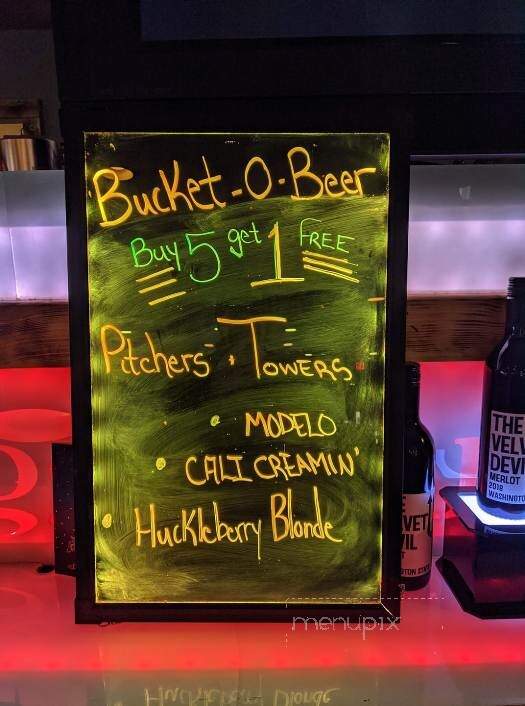 Bucket-O-Beer
Buy 5 get 1 FREE
Pitchers + Towers
• MODELO
• CALI CREAMIN'
• Huckleberry Blonde
THE
VELV
DEVI
MERLOT
2018
WASHINGTO
E
VET
VIL
T
menupix